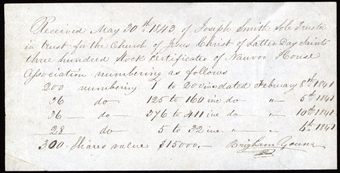 Received May 20th 1843 of Joseph Smith Sole Trustee
in trust for the Church of Jesus Christ of Latter Day Saints
three hundred Stock Certificates of Nauvoo House
Association numbering as follows
200 numbering 1 to 200 in dated February 8th 1841
36 do 125 to 160 inc do " 5th 1841
36 do 376 to 411 inc do " 10th 1841
28 do 5 to 32 inc " " 6th 1841
300 Shares value $15000, Brigham Young